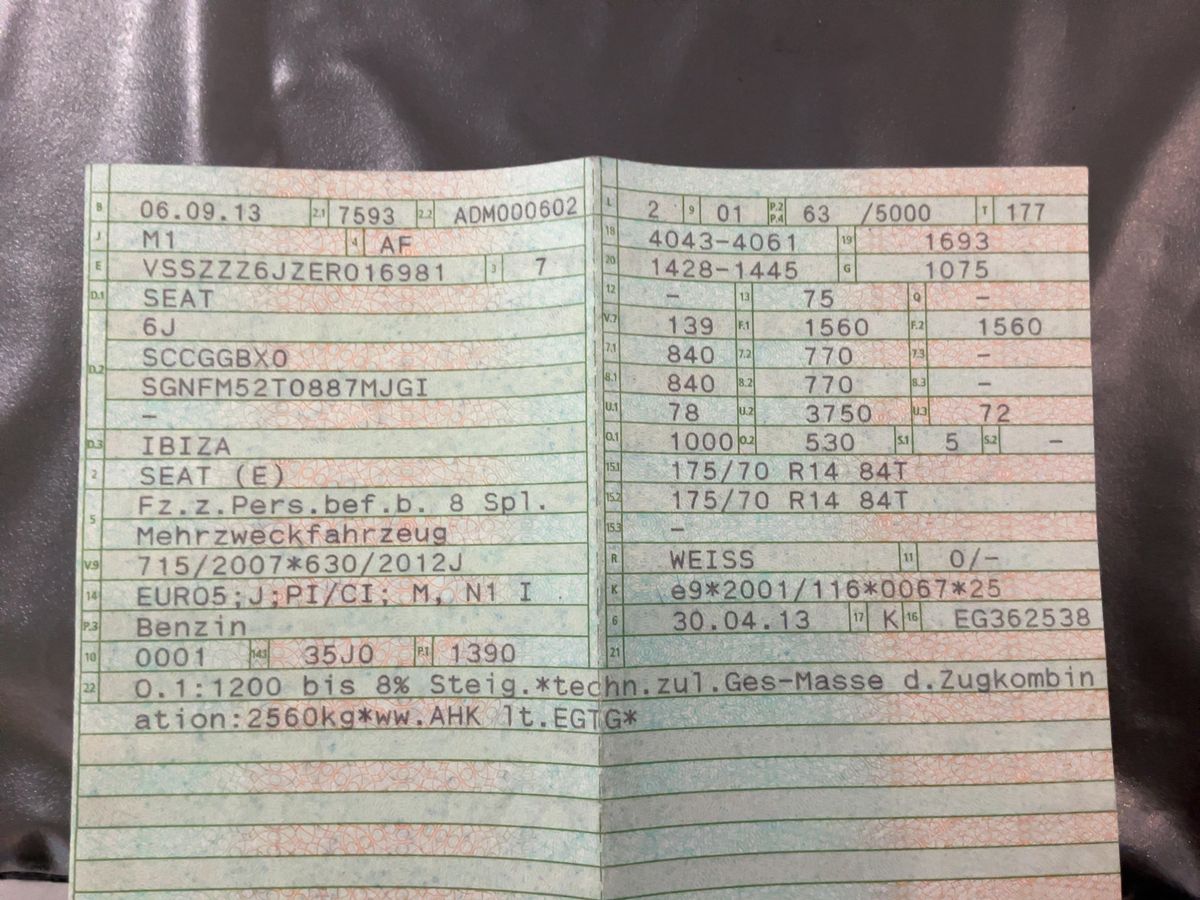 B 06.09.13 2.1 7593 2.2 ADM000602
J M1 4 AF
E VSSZZZ6JZER016981 3 7
D.1 SEAT
D.2 6J
SCCGGBX0
SGNFM52T0887MJGI
–
D.3 IBIZA
2 SEAT (E)
5 Fz.z.Pers.bef.b. 8 Spl.
Mehrzweckfahrzeug
V.9 715/2007*630/2012J
14 EURO5;J;PI/CI; M, N1 I
P.3 Benzin
10 0001 14.1 35J0 P.1 1390
L 2 9 01 P.2 P.4 63 /5000 T 177
18 4043-4061 19 1693
20 1428-1445 G 1075
12 – 13 75 Q –
V.7 139 F.1 1560 F.2 1560
7.1 840 7.2 770 7.3 –
8.1 840 8.2 770 8.3 –
U.1 78 U.2 3750 U.3 72
O.1 1000 O.2 530 S.1 5 S.2 –
15.1 175/70 R14 84T
15.2 175/70 R14 84T
15.3 –
R WEISS 11 0/–
K e9*2001/116*0067*25
6 30.04.13 17 K 16 EG362538
21
22 O.1:1200 bis 8% Steig.*techn.zul.Ges-Masse d.Zugkombin
ation:2560kg*ww.AHK lt.EGTG*